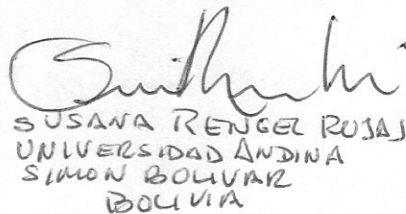 SUSANA RENGEL ROJAS
UNIVERSIDAD ANDINA
SIMON BOLIVAR
BOLIVIA